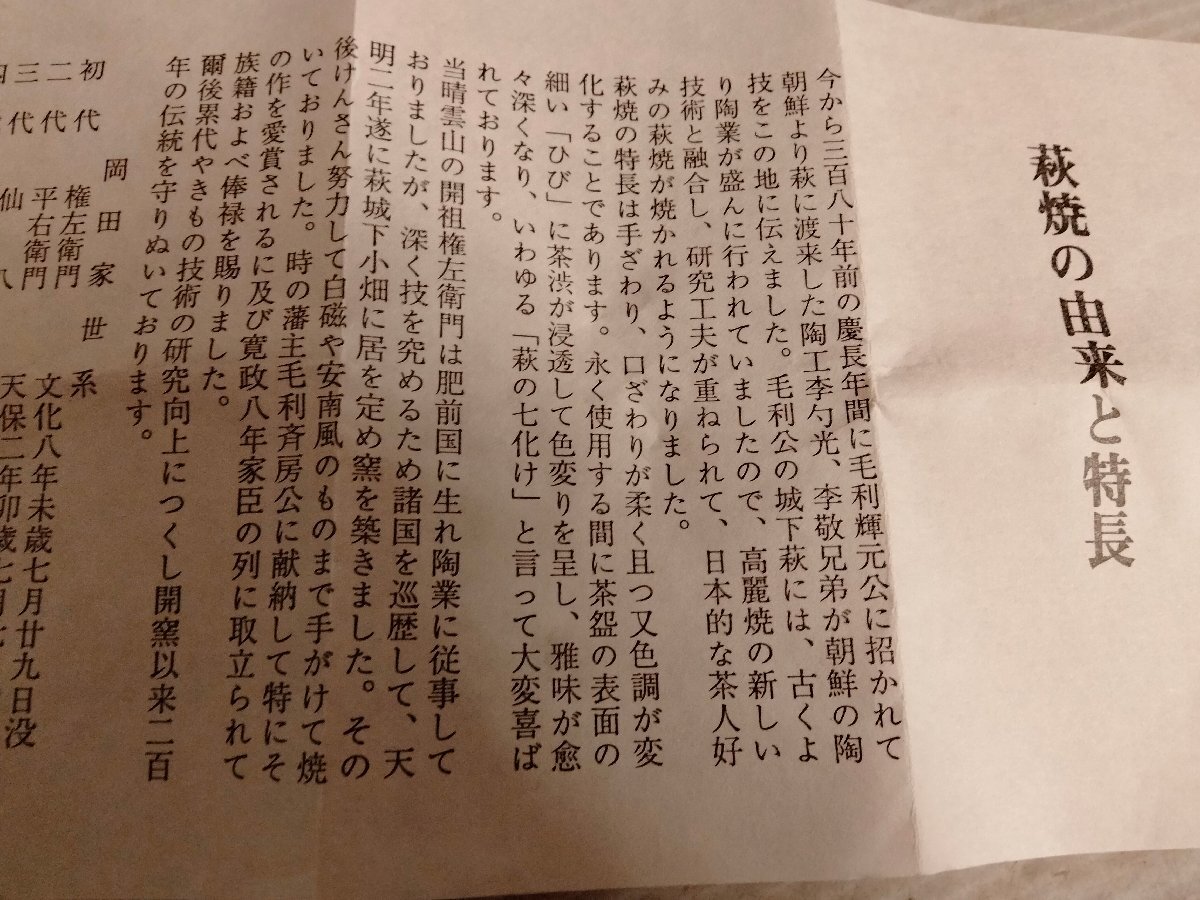 萩焼の由来と特長
今から三百八十年前の慶長年間に毛利輝元公に招かれて
朝鮮より萩に渡来した陶工李勺光、李敬兄弟が朝鮮の陶
技をこの地に伝えました。毛利公の城下萩には、古くよ
り陶業が盛んに行われていましたので、高麗焼の新しい
技術と融合し、研究工夫が重ねられて、日本的な茶人好
みの萩焼が焼かれるようになりました。
萩焼の特長は手ざわり、口ざわりが柔く且つ又色調が変
化することであります。永く使用する間に茶盌の表面の
細い「ひび」に茶渋が浸透して色変りを呈し、雅味が愈
々深くなり、いわゆる「萩の七化け」と言って大変喜ば
れております。
当晴雲山の開祖権左衛門は肥前国に生れ陶業に従事して
おりましたが、深く技を究めるため諸国を巡歴して、天
明二年遂に萩城下小畑に居を定め窯を築きました。その
後けんさん努力して白磁や安南風のものまで手がけて焼
いておりました。時の藩主毛利斉房公に献納して特にそ
の作を愛賞されるに及び寛政八年家臣の列に取立られて
族籍およべ俸禄を賜りました。
爾後累代やきもの技術の研究向上につくし開窯以来二百
年の伝統を守りぬいております。
岡田家世系
初代 権左衛門 文化八年未歳七月廿九日没
二代 平右衛門 天保二年卯歳七月
三代 仙八